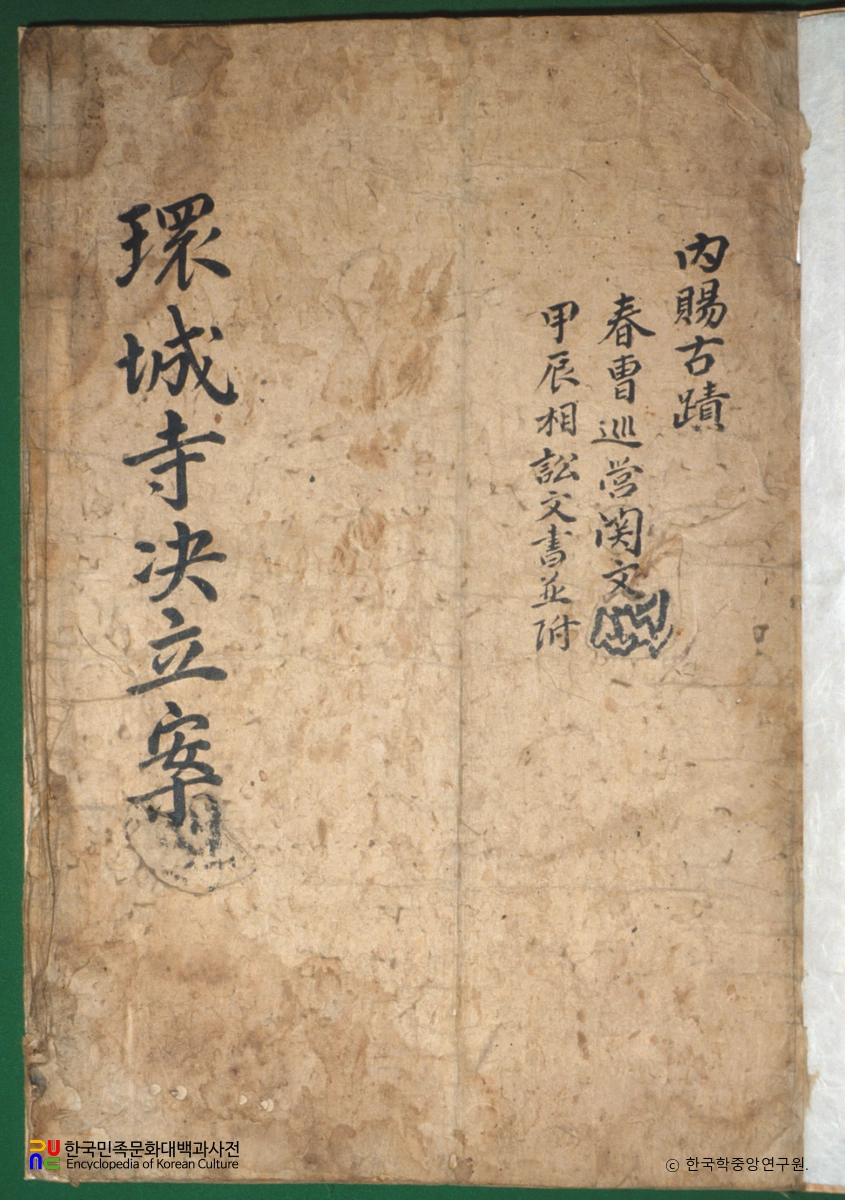 内賜古蹟
春曹巡营関文
甲辰相訟文書並附
環城寺决立案
한국민족문화대백과사전
Encyclopedia of Korean Culture
© 한국학중앙연구원.